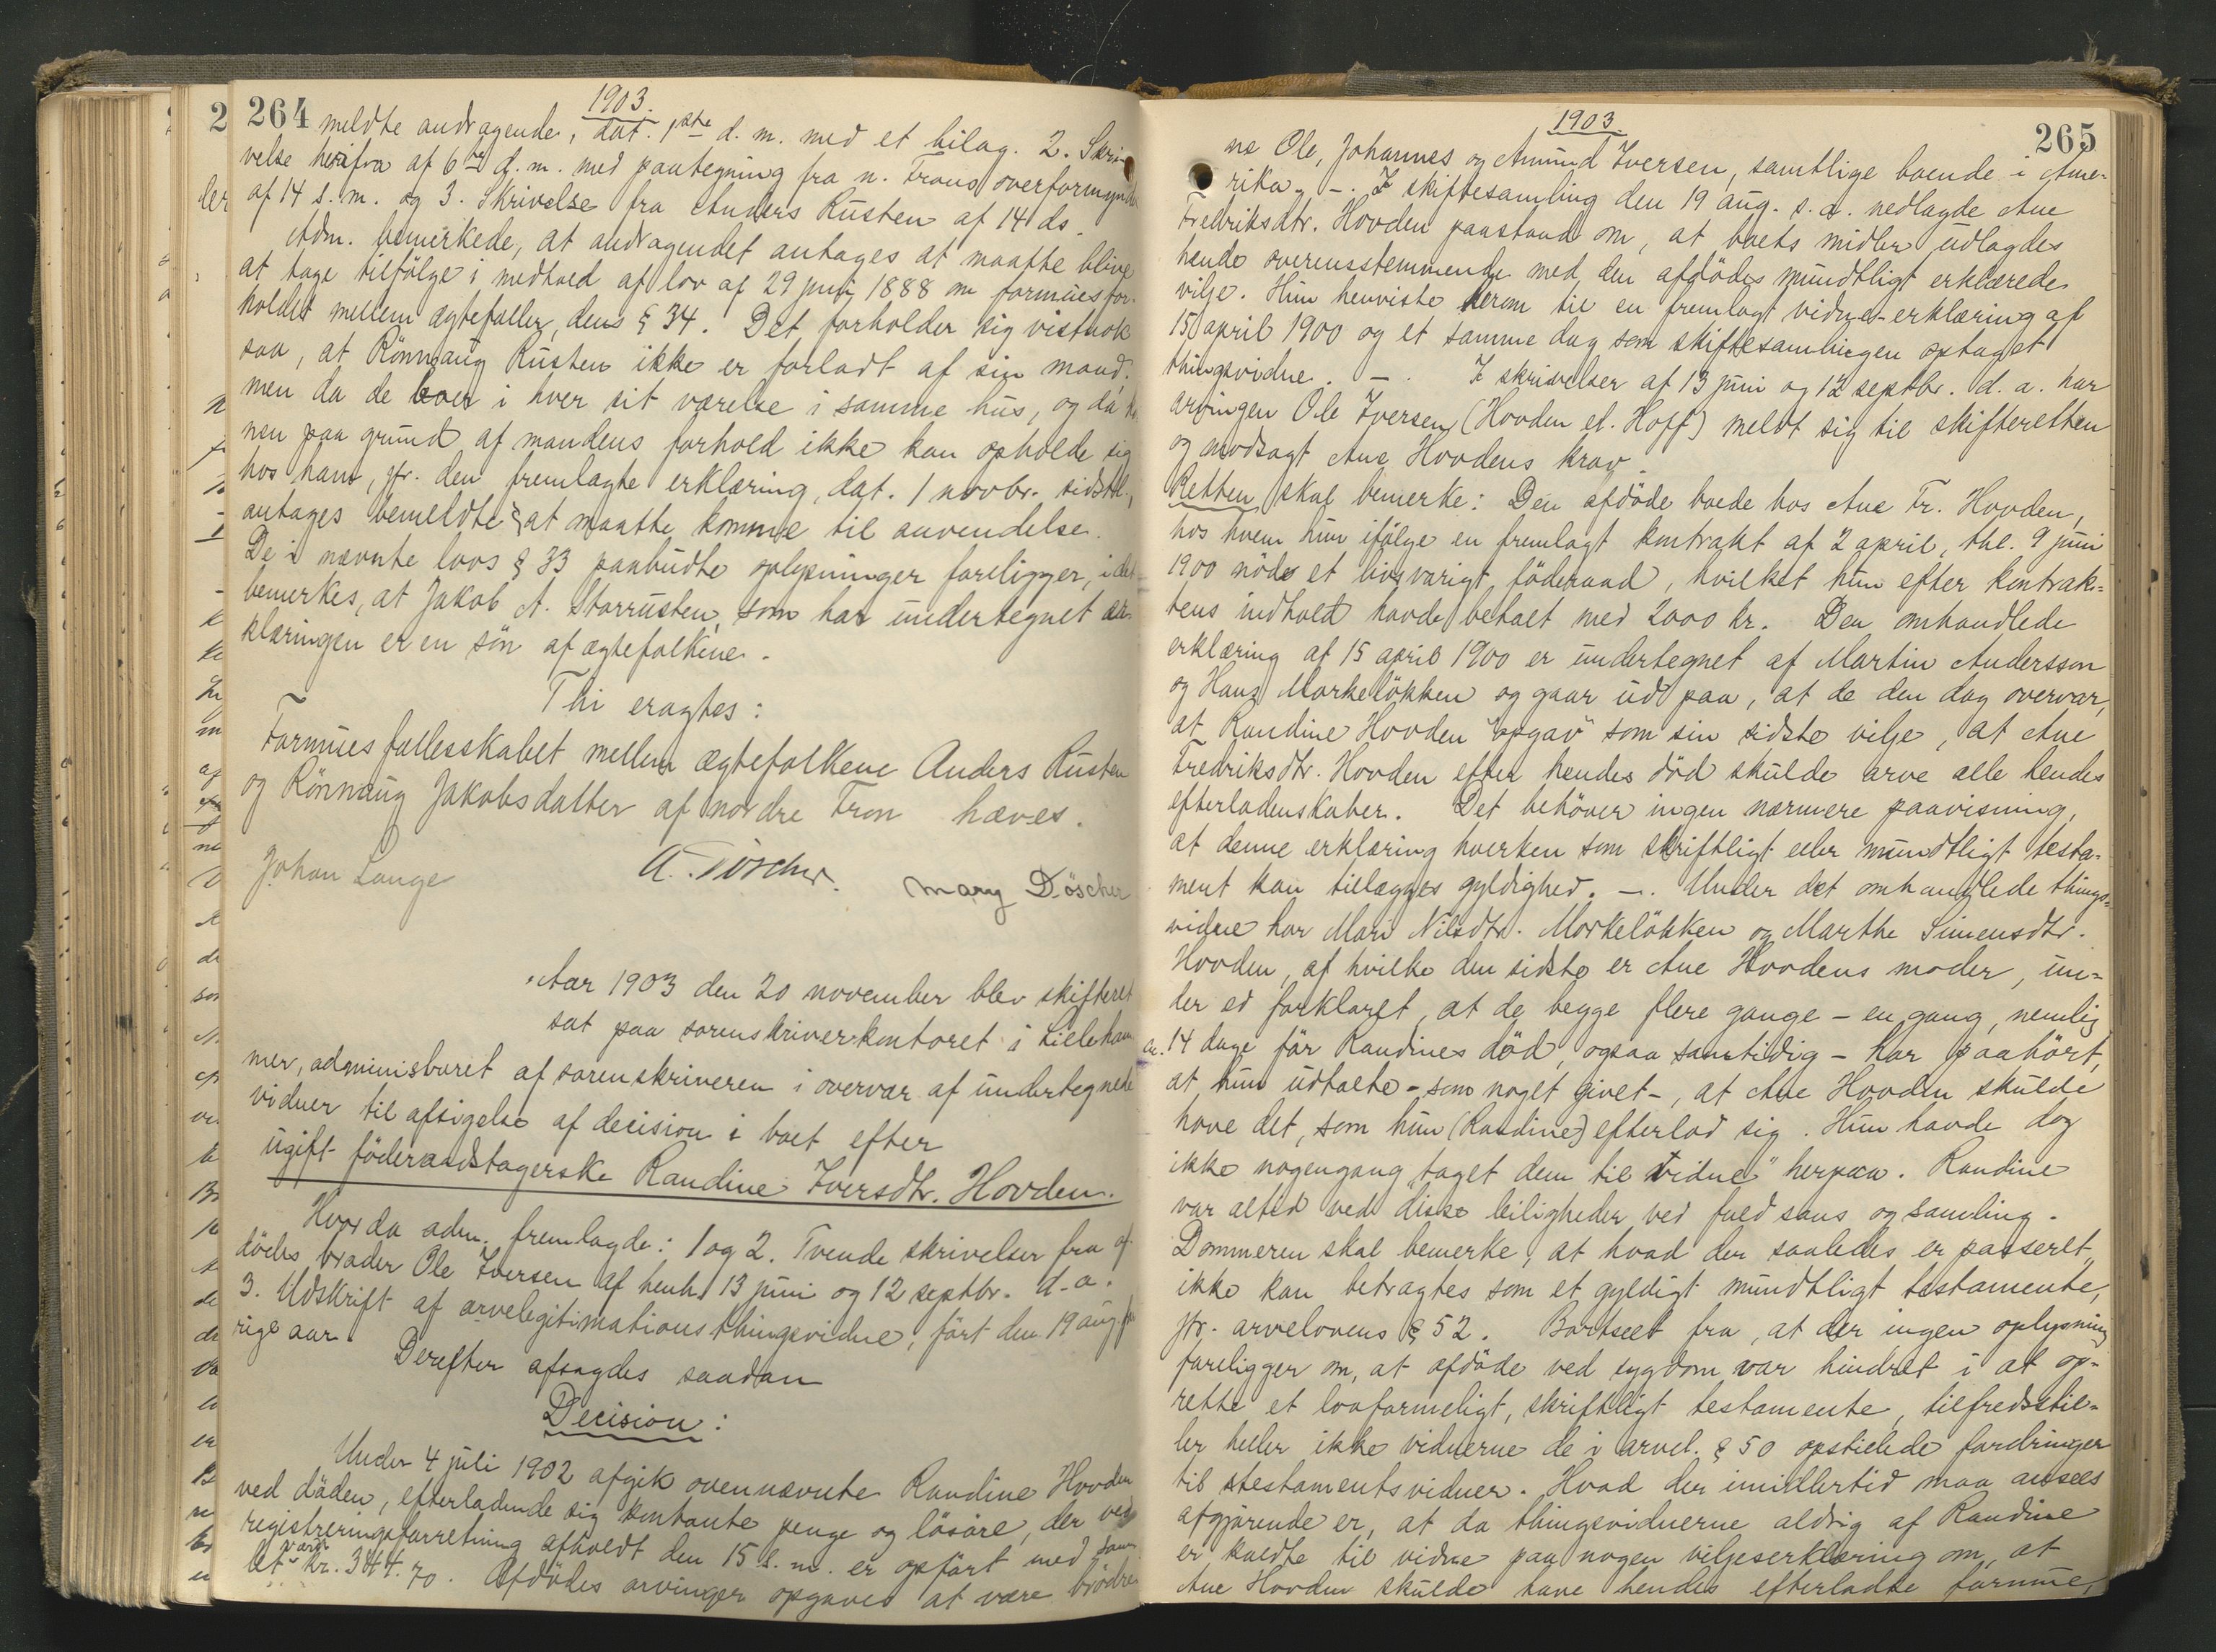 264
1903.
meldte andragende, dat. 1ste d. m. med et bilag. 2. Skri-
velse herifra af 6te d. m. med paategning fra n. Frons overformynder
af 14 s. m. og 3. Skrivelse fra Anders Rusten af 14 ds.
Adm. bemerkede, at andragendet antages at maatte blive
at tage tilfölge i medhold af lov af 29 juni 1888 om formuesfor-
holdet mellem ægtefæller, dens § 34. Det forholder sig vistnok
saa, at Rönnaug Rusten ikke er forladt af sin mand,
men da de boer i hver sit værelse i samme hus, og da ko-
nen paa grund af mandens forhold ikke kan opholde sig
hos ham, jfr. den fremlagte erklæring, dat. 1 novbr. sidstl.,
antages bemeldte § at maatte komme til anvendelse.
De i nævnte lovs § 33 paabudte oplysninger foreligger, idet
bemerkes, at Jakob A. Storrusten, som har undertegnet er-
klæringen er en sön af ægtefolkene.
Thi eragtes:
Formuesfællesskabet mellem ægtefolkene Anders Rusten
og Rönnaug Jakobsdatter af nordre Fron hæves.
Johan Lange
A. Töscher.
Mary Döscher
Aar 1903 den 20 november blev skifteret
sat paa sorenskriverkontoret i Lilleham-
mer, administreret af sorenskriveren i overvær af undertegnede
vidner til afsigelse af decision i boet efter
ugift föderaadstagerske Randine Iversdtr. Hovden.
Hvorda adm. fremlagde: 1 og 2. Tvende skrivelser fra af-
dödes broder Ole Iversen af henh. 13 juni og 12 septbr. d. a.
3. Udskrift af arvelegitimationsthingsvidne, fört den 19 aug. fo-
rige aar.
Derefter afsagdes saadan
Decision:
Under 4 juli 1902 afgik ovennævnte Randine Hovden
ved döden, efterladende sig kontante penge og lösöre, der ved
registreringsforretning afholdt den 15 s. m. er opfört med sam-
let værdi kr. 344.70. Afdödes arvinger opgaves at være brödre-
265
1903.
ne Ole, Johannes og Amund Iversen, samtlige boende i Ame-
rika. -. I skiftesamling den 19 aug. s. a. nedlagde Ane
Fredriksdtr. Hovden paastand om, at boets midler udlagdes
hende overensstemmende med den afdödes mundtligt erklærede
vilje. Hun henviste herom til en fremlagt vidne-erklæring af
15 april 1900 og et samme dag som skiftesamlingen optaget
thingsvidne. -. I skrivelser af 13 juni og 12 septbr. d. a. har
arvingen Ole Iversen (Hovden el. Hoff) meldt sig til skifteretten
og modsagt Ane Hovdens krav.
Retten skal bemerke: Den afdöde boede hos Ane Fr. Hovden,
hos hvem hun ifölge en fremlagt kontrakt af 2 april, thl. 9 juni
1900 nöd et livsvarigt föderaad, hvilket hun efter kontrak-
tens indhold havde betalt med 2000 kr. Den omhandlede
erklæring af 15 april 1900 er undertegnet af Martin Andersson
og Hans Morkelökken og gaar ud paa, at de den dag overvar,
at Randine Hovden "opgav" som sin sidste vilje, at Ane
Fredriksdtr. Hovden efter hendes död skulde arve alle hendes
efterladenskaber. Det behöver ingen nærmere paavisning,
at denne erklæring hverken som skriftligt eller mundtligt testa-
ment kan tillægges gyldighed. -. Under det omhandlede things-
vidne har Mari Nilsdtr. Morkelökken og Marthe Simensdtr.
Hovden, af hvilke den sidste er Ane Hovdens moder, un-
der ed forklaret, at de begge flere gange - en gang, nemlig
ca. 14 dage för Randines död, ogsaa samtidig - har paahört,
at hun udtalte - som noget givet -, at Ane Hovden skulde
have det, som hun (Randine) efterlod sig. Hun havde dog
ikke nogengang taget dem til "vidne" herpaa. Randine
var altid ved disse leiligheder ved fuld sans og samling.
Dommeren skal bemerke, at hvad der saaledes er passeret,
ikke kan betragtes som et gyldigt mundtligt testamente,
jfr. arvelovens § 52. Bortseet fra, at der ingen oplysning
foreligger om, at afdöde ved sygdom var hindret i at op-
rette et lovformeligt, skriftligt testamente, tilfredsstil-
ler heller ikke vidnerne de i arvel. § 50 opstillede fordringer
til testamentsvidner. Hvad der imidlertid maa ansees
afgjörende er, at da thingsvidnerne aldrig af Randine
er kaldte til vidne paa nogen viljeserklæring om, at
Ane Hovden skulde have hendes efterladte formue,